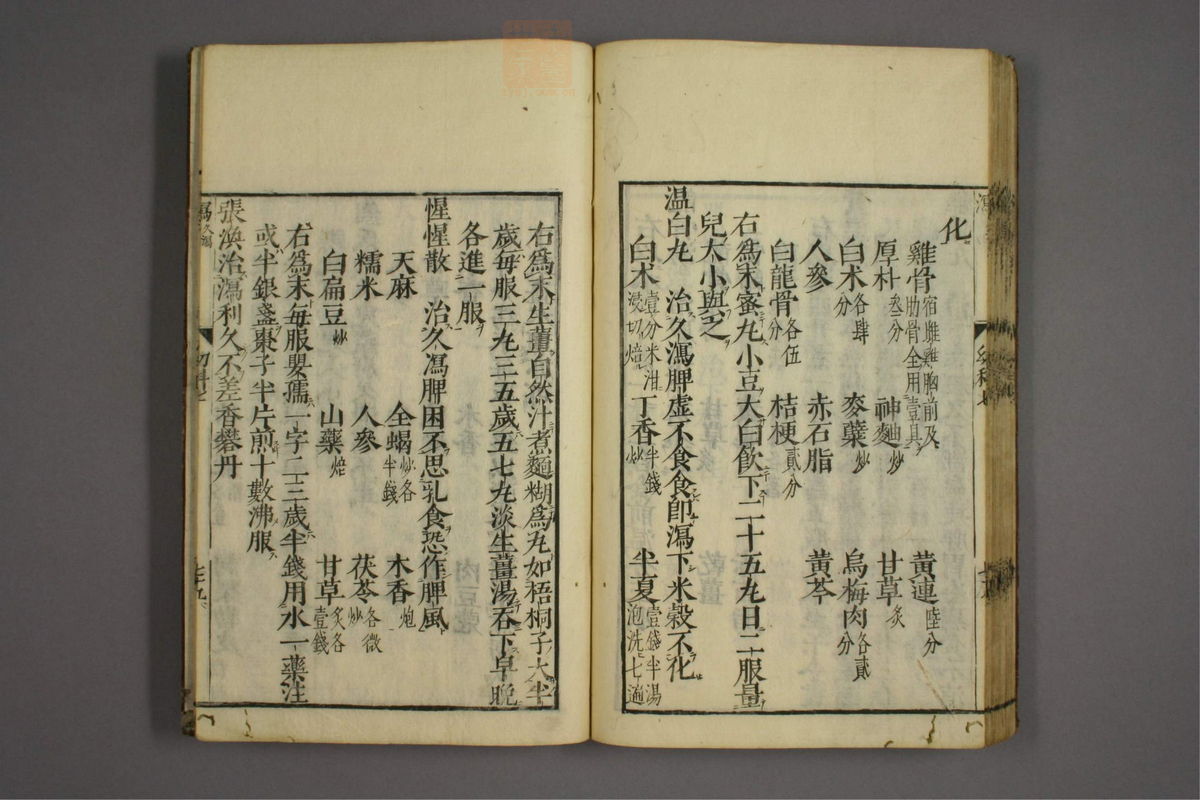 化
雞骨宿雌雞胸前及肋骨全用壹具 黃連陸分
厚朴叁分 神麯炒 甘草炙
白术各肆分 麥蘖炒 烏梅肉各貳分
人參 赤石脂 黃芩
白龍骨各伍分 桔梗貳分
右爲末蜜丸小豆大白飲下二十五丸日二服量
兒大小與之
温白丸 治久瀉脾虚不食食即瀉下米穀不化
白术壹分米泔浸切焙 丁香半錢炒 半夏壹錢半湯泡洗七遍
右爲末生薑自然汁煮麵糊爲丸如梧桐子大半
歲每服三丸三五歲五七丸淡生薑湯吞下早晚
各進一服
惺惺散 治久瀉脾困不思乳食恐作脾風
天麻 全蝎炒各半錢 木香炮
糯米 人參 茯苓各微炒
白扁豆炒 山藥焙 甘草炙各壹錢
右爲末每服嬰孺一字二三歲半錢用水一藥注
或半銀盞棗子半片煎十數沸服
張渙治瀉利久不差香礬丹
幼科七